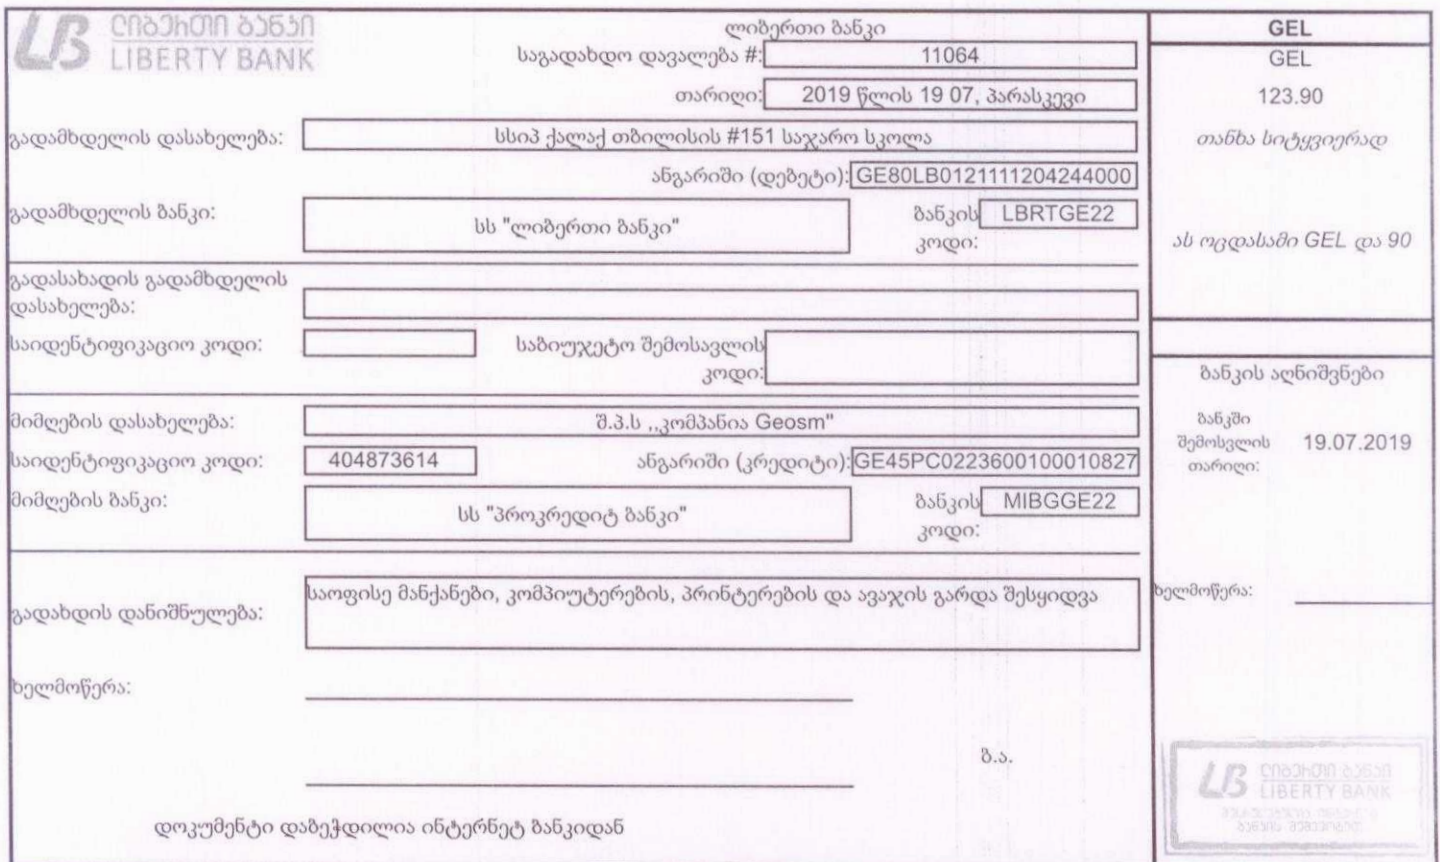 ლიბერთი ბანკი
LIBERTY BANK
ლიბერთი ბანკი
საგადახდო დავალება #: 11064
თარიღი: 2019 წლის 19 07, პარასკევი
გადამხდელის დასახელება: სსიპ ქალაქ თბილისის #151 საჯარო სკოლა
ანგარიში (დებეტი): GE80LB0121111204244000
გადამხდელის ბანკი: სს "ლიბერთი ბანკი" ბანკის კოდი: LBRTGE22
გადასახადის გადამხდელის
დასახელება:
საიდენტიფიკაციო კოდი: საბიუჯეტო შემოსავლის
კოდი:
მიმღების დასახელება: შ.პ.ს ,,კომპანია Geosm"
საიდენტიფიკაციო კოდი: 404873614 ანგარიში (კრედიტი): GE45PC0223600100010827
მიმღების ბანკი: სს "პროკრედიტ ბანკი" ბანკის კოდი: MIBGGE22
გადახდის დანიშნულება: საოფისე მანქანები, კომპიუტერების, პრინტერების და ავაჯის გარდა შესყიდვა
ხელმოწერა:
ბ.ა.
დოკუმენტი დაბეჭდილია ინტერნეტ ბანკიდან
GEL
GEL
123.90
თანხა სიტყვიერად
ას ოცდასამი GEL და 90
ბანკის აღნიშვნები
ბანკში
შემოსვლის 19.07.2019
თარიღი:
ხელმოწერა:
ლიბერთი ბანკი
LIBERTY BANK